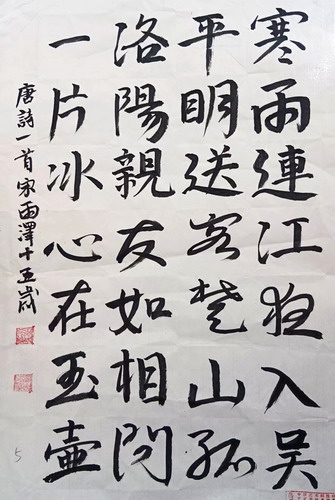 寒雨連江夜入吴
平明送客楚山孤
洛陽親友如相問
一片冰心在玉壺
唐詩一首宋雨澤十五歲
5